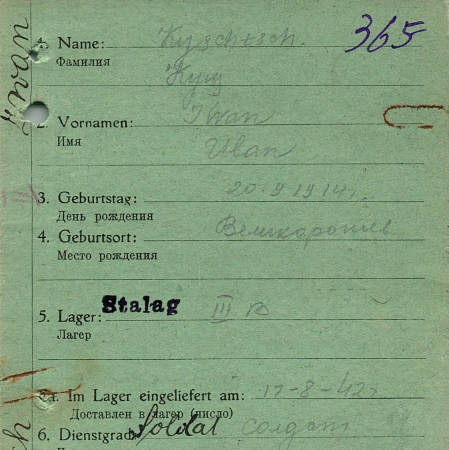 365
1. Name: Kyschtsch.
Фамилия
Кущ
2. Vornamen: Iwan
Имя
Иван
3. Geburtstag: 20.9.1914г.
День рождения
4. Geburtsort:
Место рождения
5. Lager: Stalag III B
Лагер
5a. Im Lager eingeliefert am: 17-8-42г
Доставлен в лагер (число)
6. Dienstgrad: Soldat солдат
Iwan